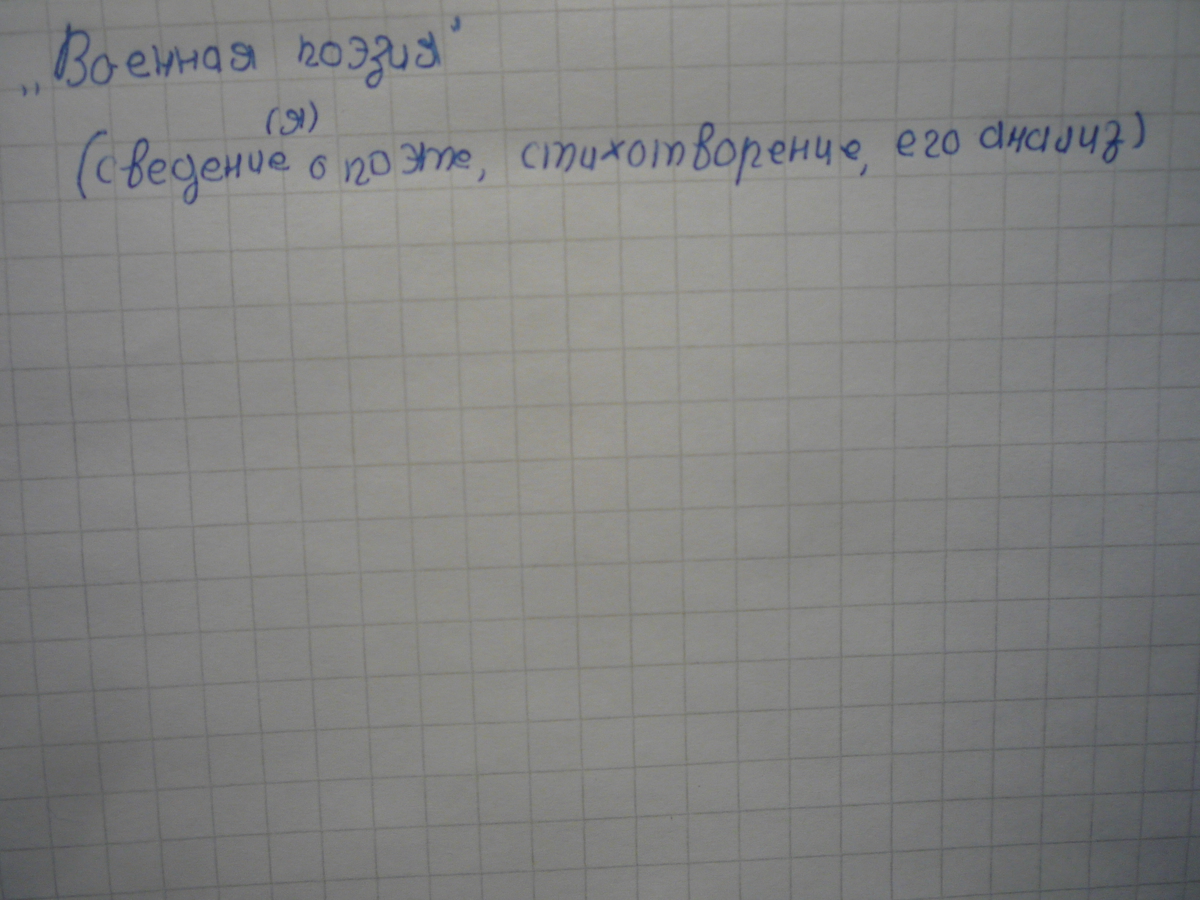 „Военная поэзия"
(я)
(сведение о поэте, стихотворение, его анализ)